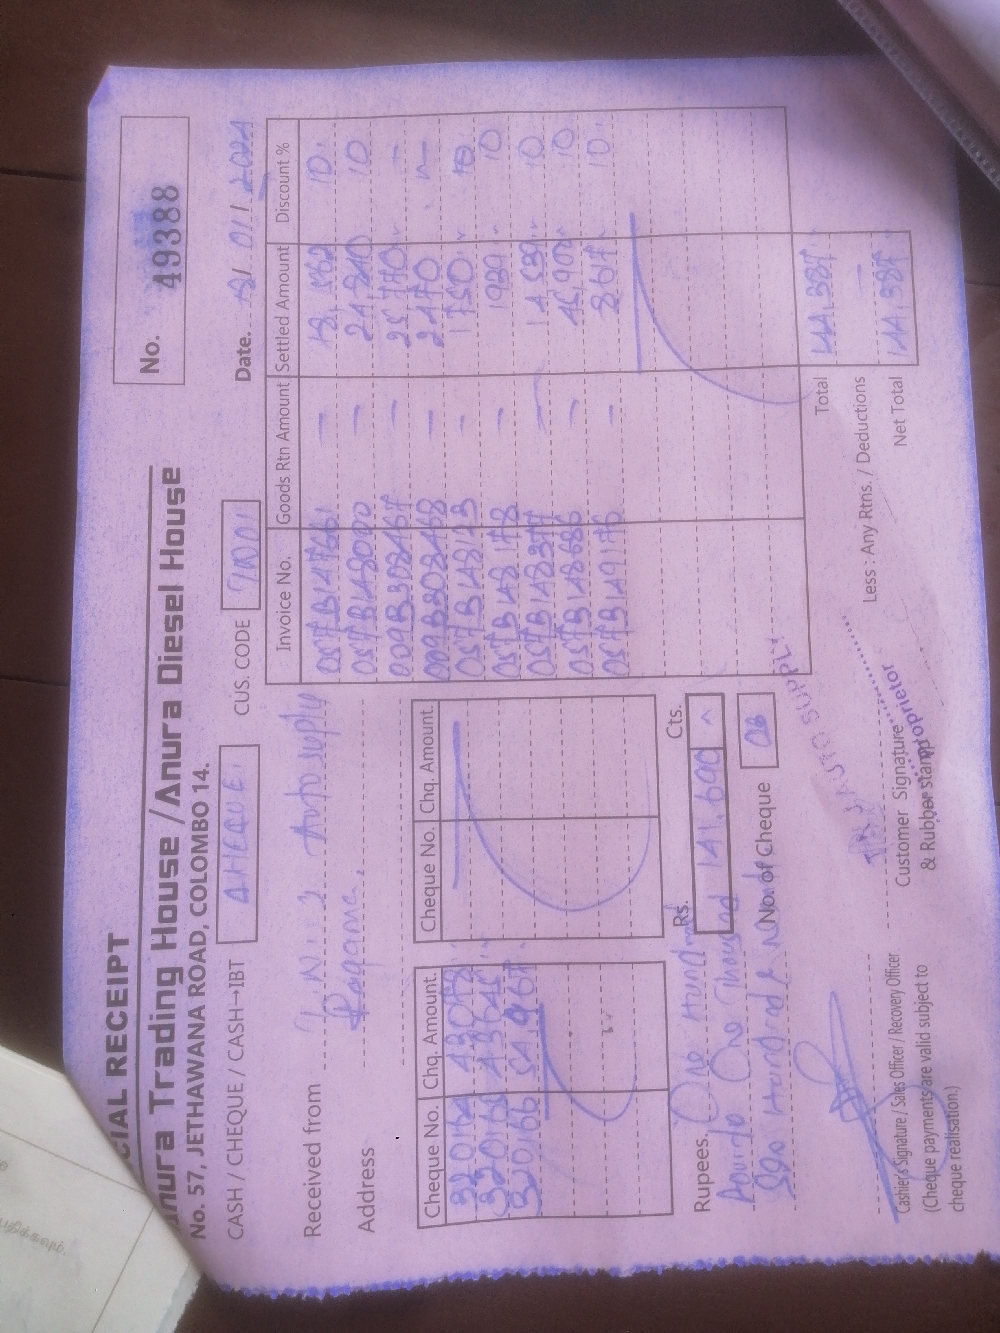 CIAL RECEIPT
nura Trading House /Anura Diesel House
No. 57, JETHAWANA ROAD, COLOMBO 14.
No. 49388
CASH / CHEQUE / CASH→IBT CHEQUE
CUS. CODE
Date. 01 2024
Received from Auto Supply
Address Ragama.
Cheque No. Chq. Amount.
320164
320165
320166
Cheque No. Chq. Amount.
Invoice No. Goods Rtn Amount Settled Amount Discount %
057B147661 — 10
057B148000 — 24,840 10
009B308467 — 25770 —
009B308468 — 2470 —
057B148123 — 1750 10
057B148178 — 1939 10
057B148377 — 14 539 10
057B148686 — 45,900 10
057B149176 — 8617 10
Total 144,387
Less : Any Rtns. / Deductions —
Net Total 144,387
Rs. 141,690 Cts.
Rupees. One Hundred
Fourty One Thousand
Six Hundred & Ninety
No. of Cheque 03
Cashier's Signature / Sales Officer / Recovery Officer
(Cheque payments are valid subject to
cheque realisation.)
AUTO SUPPLY
Proprietor
Customer Signature
& Rubber stamp